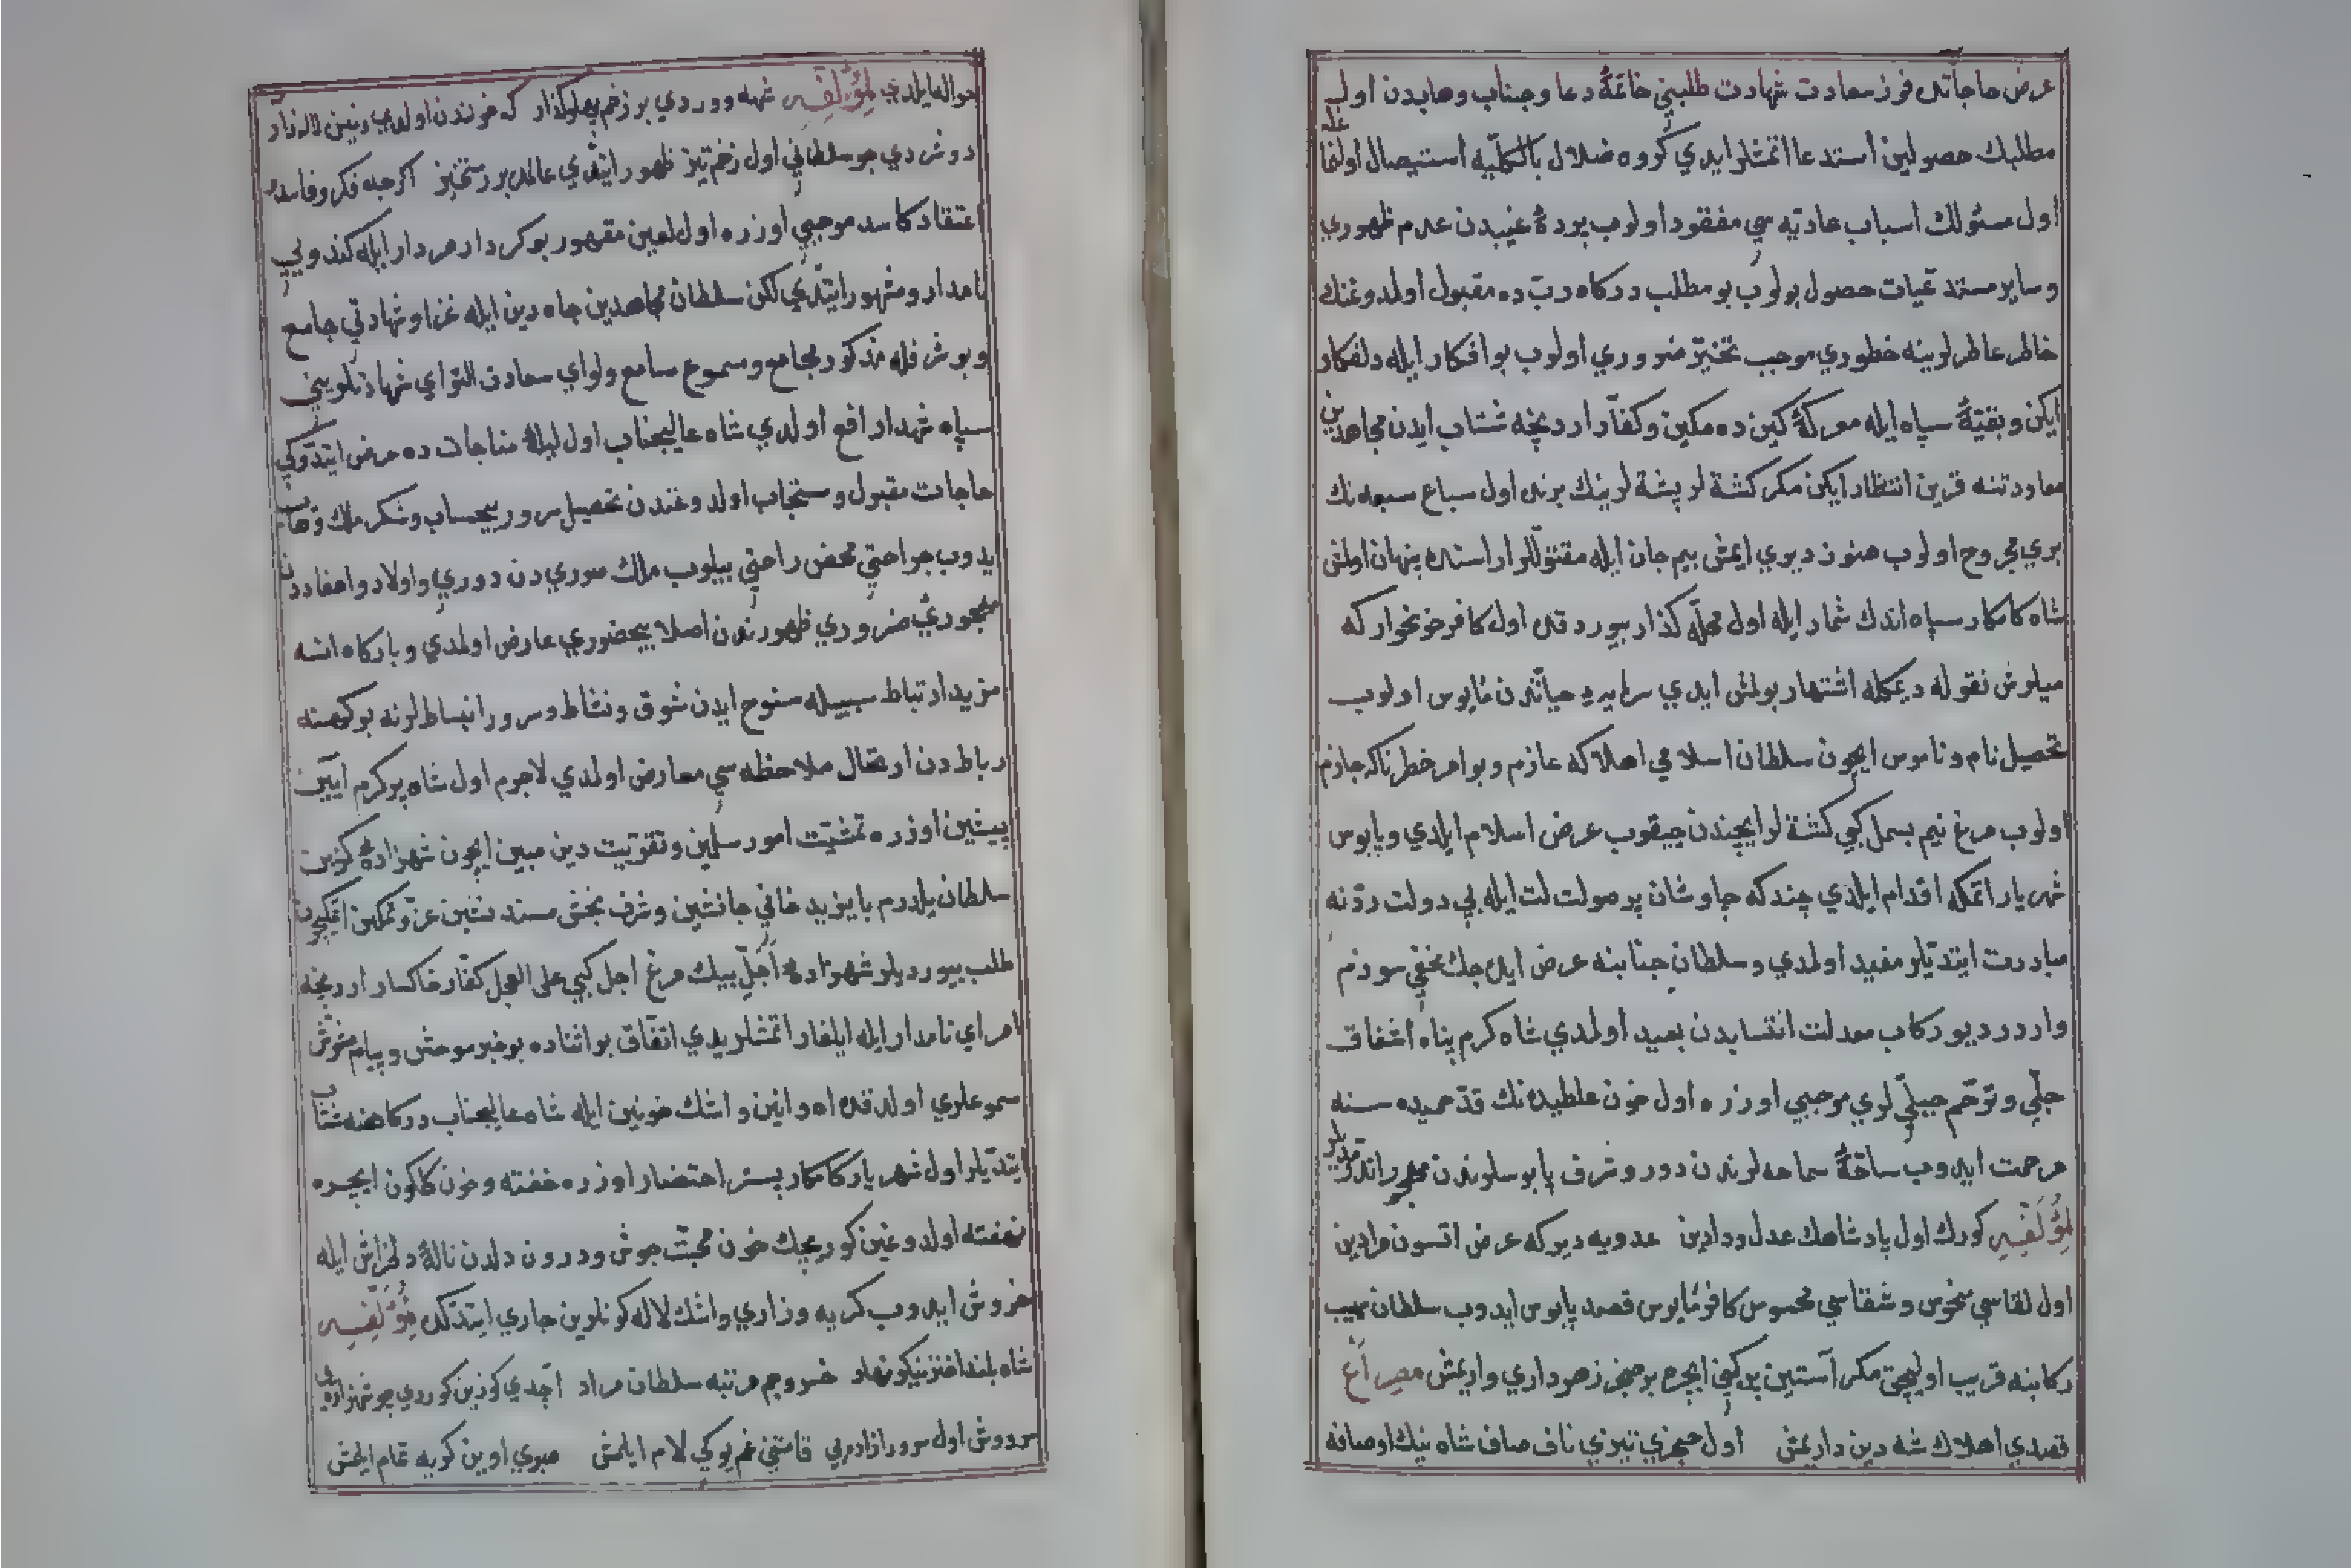 عرض حاجاتده فوز سعادت شهادت طلبنی خاتمهٔ دعا وجناب وهابدن اول
مطلبك حصولین استدعا اتمشلر ایدی کروه ضلال بالکلیه استیصال اولنمغله
اول مسئولك اسباب عادیه سی مفقود اولوب پردهٔ غیبدن عدم ظهوری
وسایر مستدعیات حصول بولوب بو مطلب درکاه ربّ ده مقبول اولمدوغنك
خاطر عاطرلرینه خطوری موجب تحیّر ضروری اولوب بو افکار ایله دلفکار
ایکن وبقیهٔ سپاه ایله معرکهٔ کین ده مکین وکفّار اردنجه شتاب ایدن مجاهدین
معاودتنه قرین انتظار ایکن مکر کشته لر پشته لرینك برنده اول سباع سبعه نك
بری مجروح اولوب هنوز دیری ایمش بیم جان ایله مقتوللر اراسنده پنهان اولمش
شاه کامکار سپاه اندك شمار ایله اول محلّه کذار بیوردقده اول کافر خونخوار که
میلوش نقوله دیمکله اشتهار بولمش ایدی سرایر حیاتدن مأیوس اولوب
تحصیل نام وناموس ایچون سلطان اسلامی اهلاکه عازم وبو امر خطرناکه جازم
اولوب مرغ نیم بسمل کبی کشته لر ایچندن چیقوب عرض اسلام ایلدی وپابوس
شهریار اتمکله اقدام ایلدی چندکه چاوشان پر صولت لت ایله بی دولت ردّنه
مبادرت ایتدیلر مفید اولمدی وسلطان جنابنه عرض ایده جك مخفی سوزم
واردر دیو رکاب معدلت انتسابدن بعید اولمدی شاه کرم پناه اشفاق
جلّی وترحّم جبلّی لری موجبی اوزره اول خون غلطیده نك قدّ خمیده سنه
مرحمت ایدوب ساحهٔ سماحه لرندن دور وشرف پابوسلرندن مهجور اتدرمدیلر
لمؤلفه کورك اول پادشاهك عدل ودادین عدویه دیر که عرض اتسون مرادین
اول لقاسی منحوس وشقاسی محسوس کافر مأیوس قصد پابوس ایدوب سلطان مهیب
رکابنه قریب اولیجق مکر آستین پر کین ایچره بر خنجر زهرداری وارمش مصراع
قصدی اهلاك شه دین دارمش اول خنجری تیزی ناف صاف شاه نیك اوصافه
حواله ایلدی لمؤلفه شهه ووردی بر زخم پهلوکذار که خونندن اولدی زمین لاله زار
دوش دی چو سلطانی اول زخم تیز ظهور ایتدی عالمده بر رستخیز اکرچه فکر وفاسد
اعتقاد کاسد موجبی اوزره اول لعین مقهور بو کردار مردار ایله کندویی
نامدار ومشهور ایتدی لکن سلطان مجاهدین جاه دین ایله غزا وشهادتی جامع
وبو شرفله مذکور مجامع ومسموع سامع ولوای سعادت التوای شهادتلرینی
سپاه شهدا رافع اولدی شاه عالیجناب اول لیلهٔ مناجات ده عرض ایتدوکی
حاجات مقبول ومستجاب اولدوغندن تحصیل سرور بیحساب وشکر ملك وهاب
ایدوب جراحتی محض راحتی بیلوب ملك صوری دن دوری واولاد واحفاددن
مهجوری ضروری ظهورندن اصلا بیحضوری عارض اولمدی وبارکاه انسه
مزید ارتباط سببیله سنوح ایدن شوق ونشاط وسرور انبساطلرنه بو کهنه
رباط دن ارتحال ملاحظه سی معارض اولمدی لاجرم اول شاه پر کرم آیین
پیشین اوزره تمشیت امور مسلمین وتقویت دین مبین ایچون شهزادهٔ کزین
سلطان یلدرم بایزید خانی جانشین وشرف بخش مسند نشین عزّ وتمکین اتمکیچون
طلب بیوردیلر شهزادهٔ اجلّ پیك مرغ اجل کبی علی العجل کفّار خاکسار اردنجه
امرای نامدار ایله ایلغار اتمشلریدی اتفاق بو اثناده بو خبر موحش وپیام مشوش
مسموعلری اولدقده آه وانین واشك خونین ایله شاه عالیجناب درکاهنه شتاب
ایتدیلر اول شهریار کامکار بستر احتضار اوزره خفته وخون کلکون ایچره
نهفته اولدوغین کوریجك خون محبّت جوش ودرون دلدن نالهٔ دلخراش ایله
خروش ایدوب کریه وزاری واشك لاله کونلرین جاری ایتدکده لمؤلفه
شاه بلند اختر نیکو نهاد خسرو جم مرتبه سلطان مراد آچدی کوزین کوردی چو شهزاده یی
سرووش اول سرور ازاده یی قامتنی غم یوکی لام ایلمش عبری اوین کریه غام ایلمش